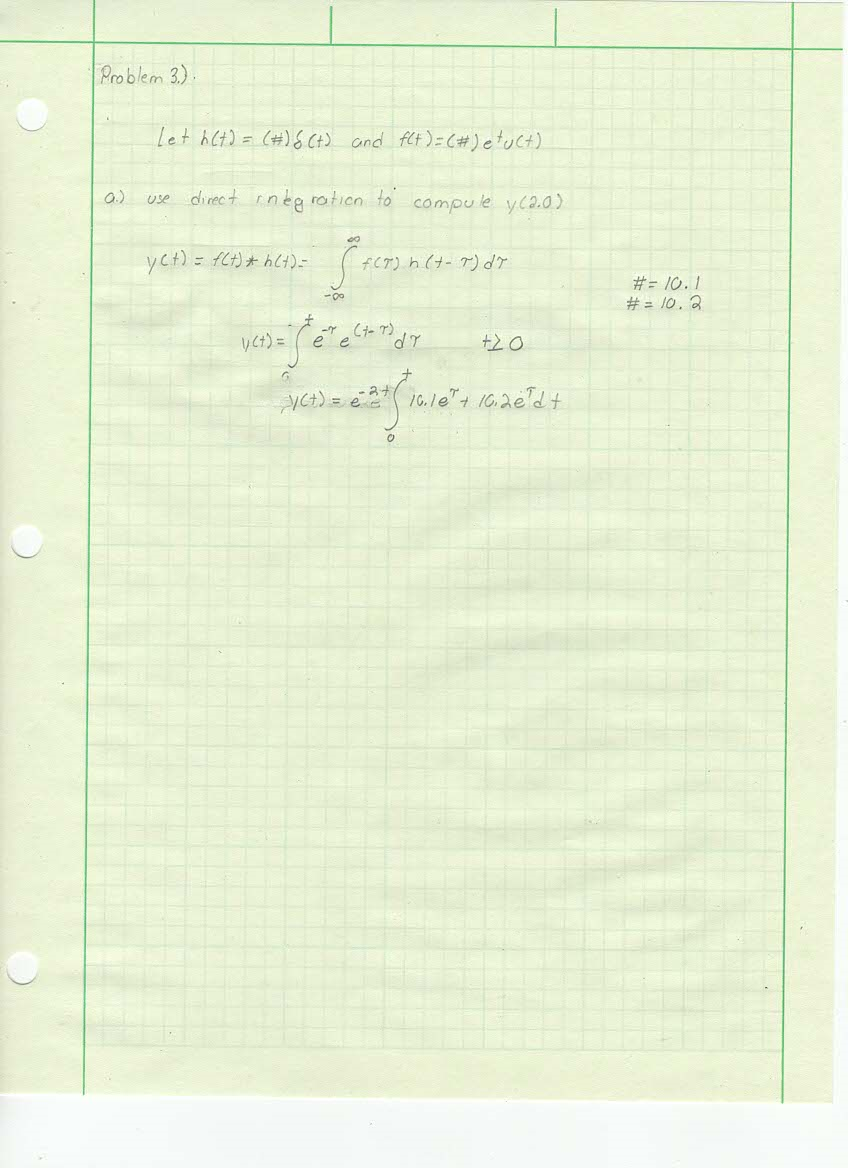 Problem 3.).
Let h(t) = (#)δ(t) and f(t)=(#)e^t u(t)
a.) use direct integration to compute y(2.0)
y(t) = f(t)*h(t)= ∫_{-∞}^{∞} f(τ) h(t-τ)dτ
#= 10.1
#= 10.2
y(t)= ∫_0^t e^{-τ} e^{(t-τ)} dτ t≥0
y(t) = e^{-2t} ∫_0^t 10.1e^τ + 10.2e^τ dt